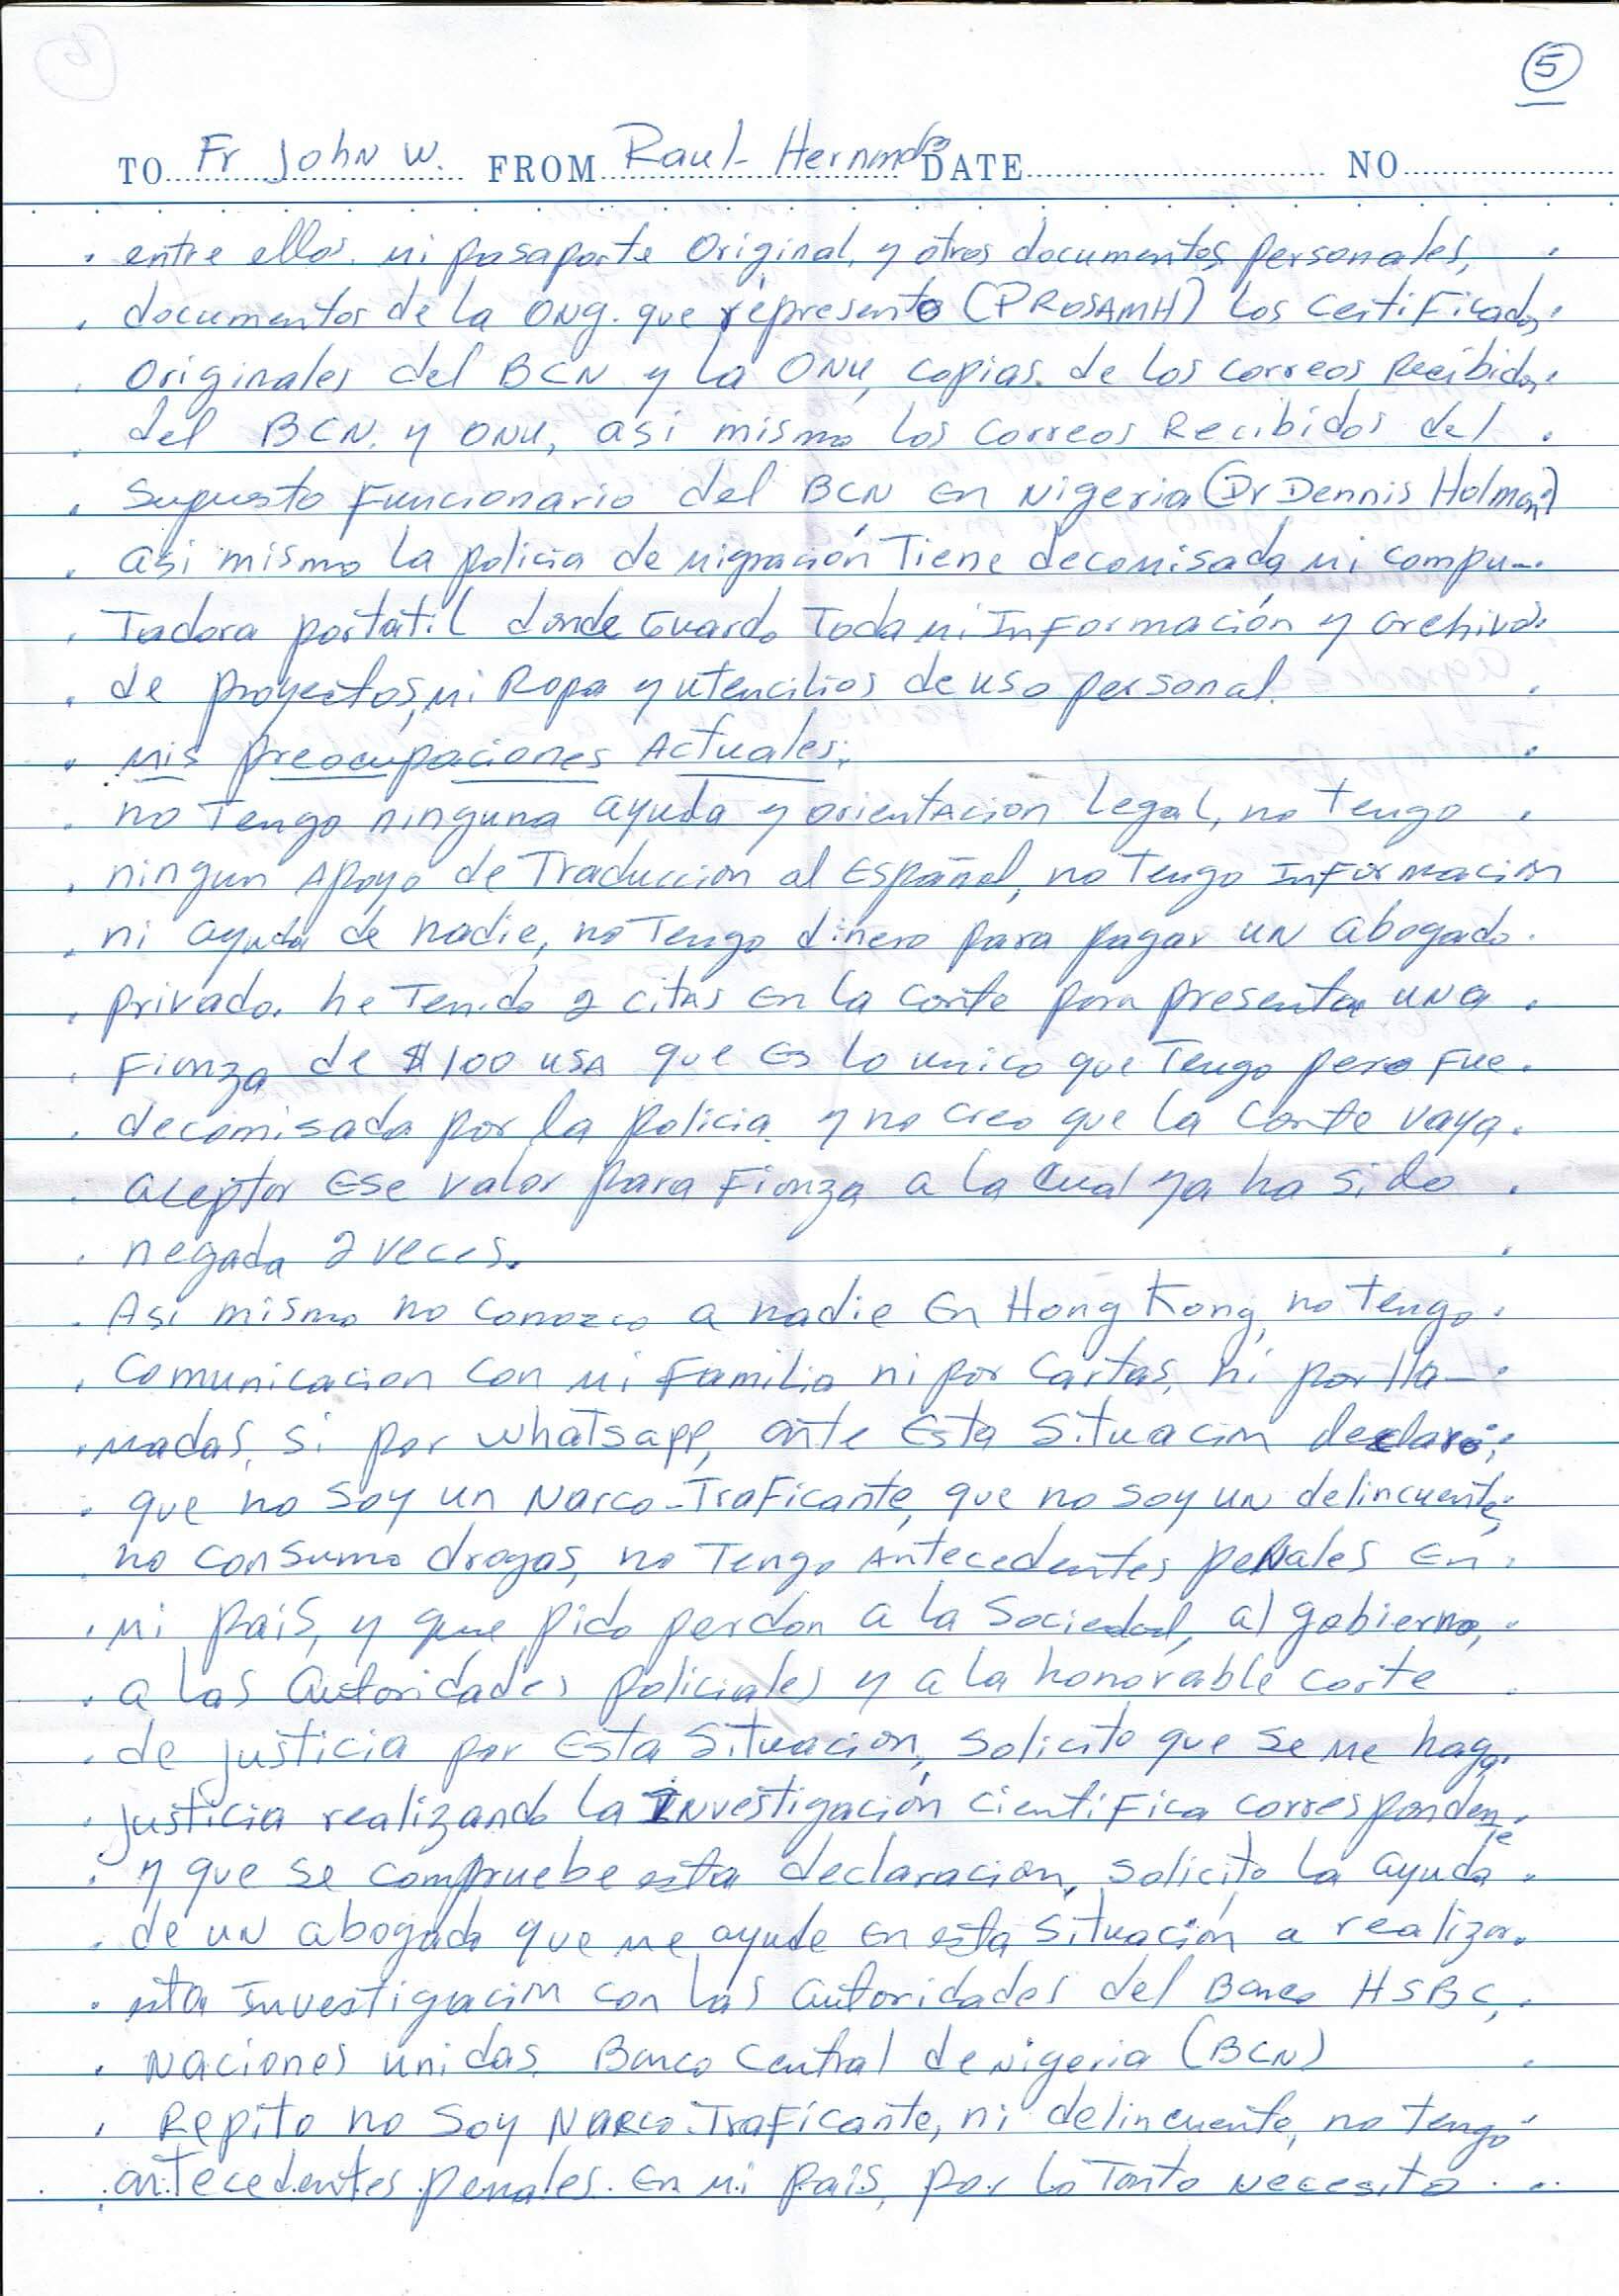 5
TO Fr John W. FROM Raul Hernando DATE NO
entre ellos. mi pasaporte Original, y otros documentos personales,
documentos de la ONG. que represento (PROSAMH) Los Certificados
Originales del BCN y la ONU, copias de los correos Recibidos
del BCN. y ONU, asi mismo los correos Recibidos del
supuesto Funcionario del BCN en Nigeria (Dr Dennis Holman)
asi mismo la policia de migración Tiene decomisada mi compu-
Tadora portatil donde Guardo Toda mi Información y archivos
de proyectos, mi Ropa y utencilios de uso personal.
Mis preocupaciones Actuales;
no Tengo ninguna ayuda y orientacion Legal, no tengo
ningun Apoyo de Traduccion al Español, no Tengo Informacion
ni ayuda de nadie, no Tengo dinero para pagar un abogado
privado. he Tenido 2 citas en la corte para presentar una
Fianza de $100 USA que es lo unico que Tengo pero fue
decomisada por la policia y no creo que la Corte vaya
aceptar Ese valor para Fianza a la cual ya ha sido
negada 2 veces.
Asi mismo no conozco a nadie En Hong Kong, no tengo
comunicacion con mi familia ni por Cartas, ni por lla-
madas, si por whatsapp, ante Esta Situacion declaro;
que no soy un Narco-Traficante, que no soy un delincuente,
no consumo drogas, no Tengo Antecedentes penales en
mi pais, y que pido perdon a la Sociedad, al gobierno,
a las autoridades policiales y a la honorable corte
de justicia por Esta Situacion, Solicito que se me haga
justicia realizando la Investigación cientifica correspondente
y que se compruebe esta declaracion, solicito la ayuda
de un abogado que me ayude en esta situación a realizar
esta Investigacion con las autoridades del Banco HSBC,
Naciones unidas. Banco Central de Nigeria (BCN)
Repito no soy Narco-Traficante, ni delincuente, no tengo
antecedentes penales. En mi pais, por lo Tanto Necesito